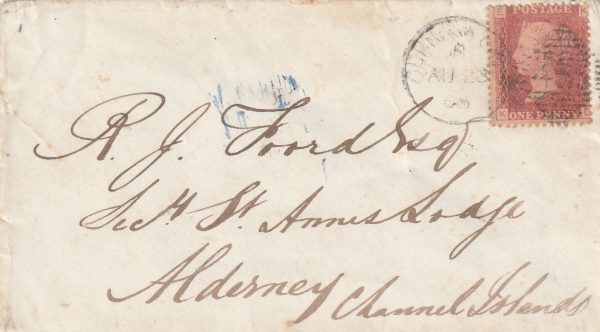 POSTAGE
ONE PENNY
AU 28
R. J. Foord Esqr
Sec St. Annes Lodge
Alderney Channel Islands